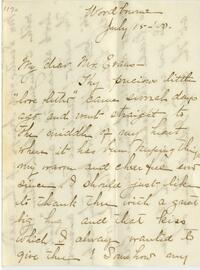 Woodbourne
July 15 -
My dear Mr. Evans -
Thy precious little
"love letter" came several days
ago and went straight to
the middle of my heart,
where it has been keeping things
warm and cheerful ever
since. I should just like
to thank thee with a great
big hug and that kiss
which I always wanted to
give thee! Somehow my